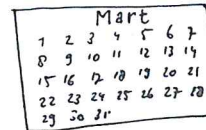 Mart
1 2 3 4 5 6 7
8 9 10 11 12 13 14
15 16 17 18 19 20 21
22 23 24 25 26 27 28
29 30 31